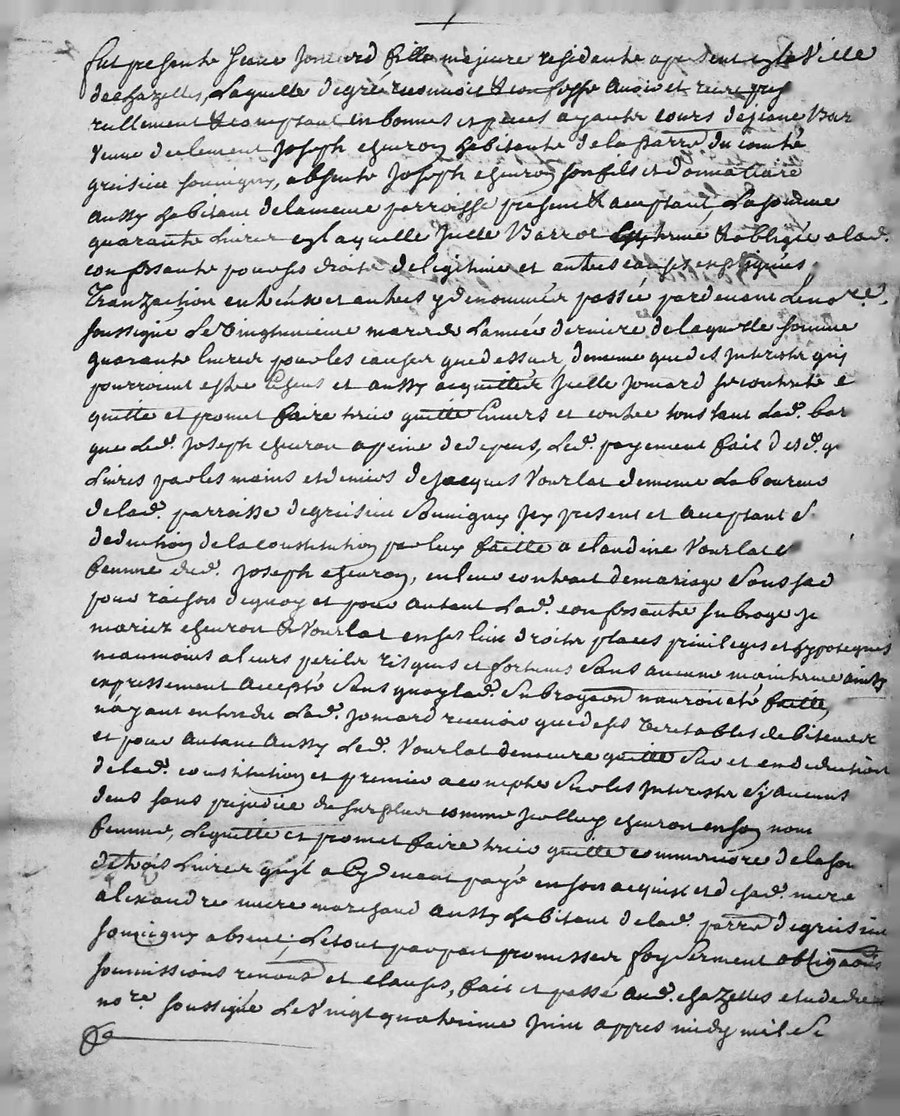 fut presente jeane jomard fille majeure residante apresent en la Ville
de chazelles, Laquelle de gré reconnois & confesse avoir et receu
reellement & comptant en bonnes especes ayante cours de jeane Bar
Veuve de clement joseph cheuron habitante de la parre du comte
greisieu souvigny, absente joseph cheuron son fils et donnattaire
aussy habitant de la meme parroisse present & aceptant, La somme
quarante Livres en laquelle jcelle Barrot tenue & obligée a lad.
confessante pour ses droits de legitime et autres causes
Tranzaction entre eux et autres y denommées passée pardevant Le no.re
soussigné Le Vingtuneieme mars de L'année derniere de laquelle somme
quarante livres pour les causes que dessus de meme que des jnterests qui
pourroient estre et aussy acquittés jcelle jomard se contente e
quitte et promet faire tenir quitte Envers et contre tous tant lad. bar
que led. joseph cheuron a peine de depens, Led. payement fait desd. q
Livres par les mains et deniers de jacques Vourlat de meme Laboureur
de lad. parroisse de greisieu Souvigny jcy present et aceptant S
deduction de la constitution par luy faitte a claudine Vourlat
femme dud. joseph cheuron, en leur contrat de mariage Sous sad
pour raison de quoy et pour autant Lad. confessante subroge
mariez cheuron & Vourlat en ses lieu droits places privileges et hypoteques
neanmoins a leurs perils risques et fortunes Sans aucune maintenue ainsy
expressement accepté Sans quoy lad. Subrogaon n'auroit eté faitte,
n'ayant entendu Lad. jomard recevoir que de ses Veritables debiteurs
et pour autant aussy Led. Vourlat demeure quitte Sur et en deduction
de lad. constitution et premier a compte Sur les jnterests Sy aucuns
deus sans prejudice du surplus comme jcelluy cheuron en son nom
femme, Le quitte et promet faire tenir quitte comm encore de la so
de trois Livres qu'il a cy devant payé en son acquit et de sad. mere
alexandre mure marchand aussy habitant de lad. parre de greisieu
souvigny absent; Le tout par promesses foy serment obligaons
soumissions renons et clauses, fait et passé aud. chazelles etude de
no.re soussigné Le Vingt quatrieme juin appres midy mil Se